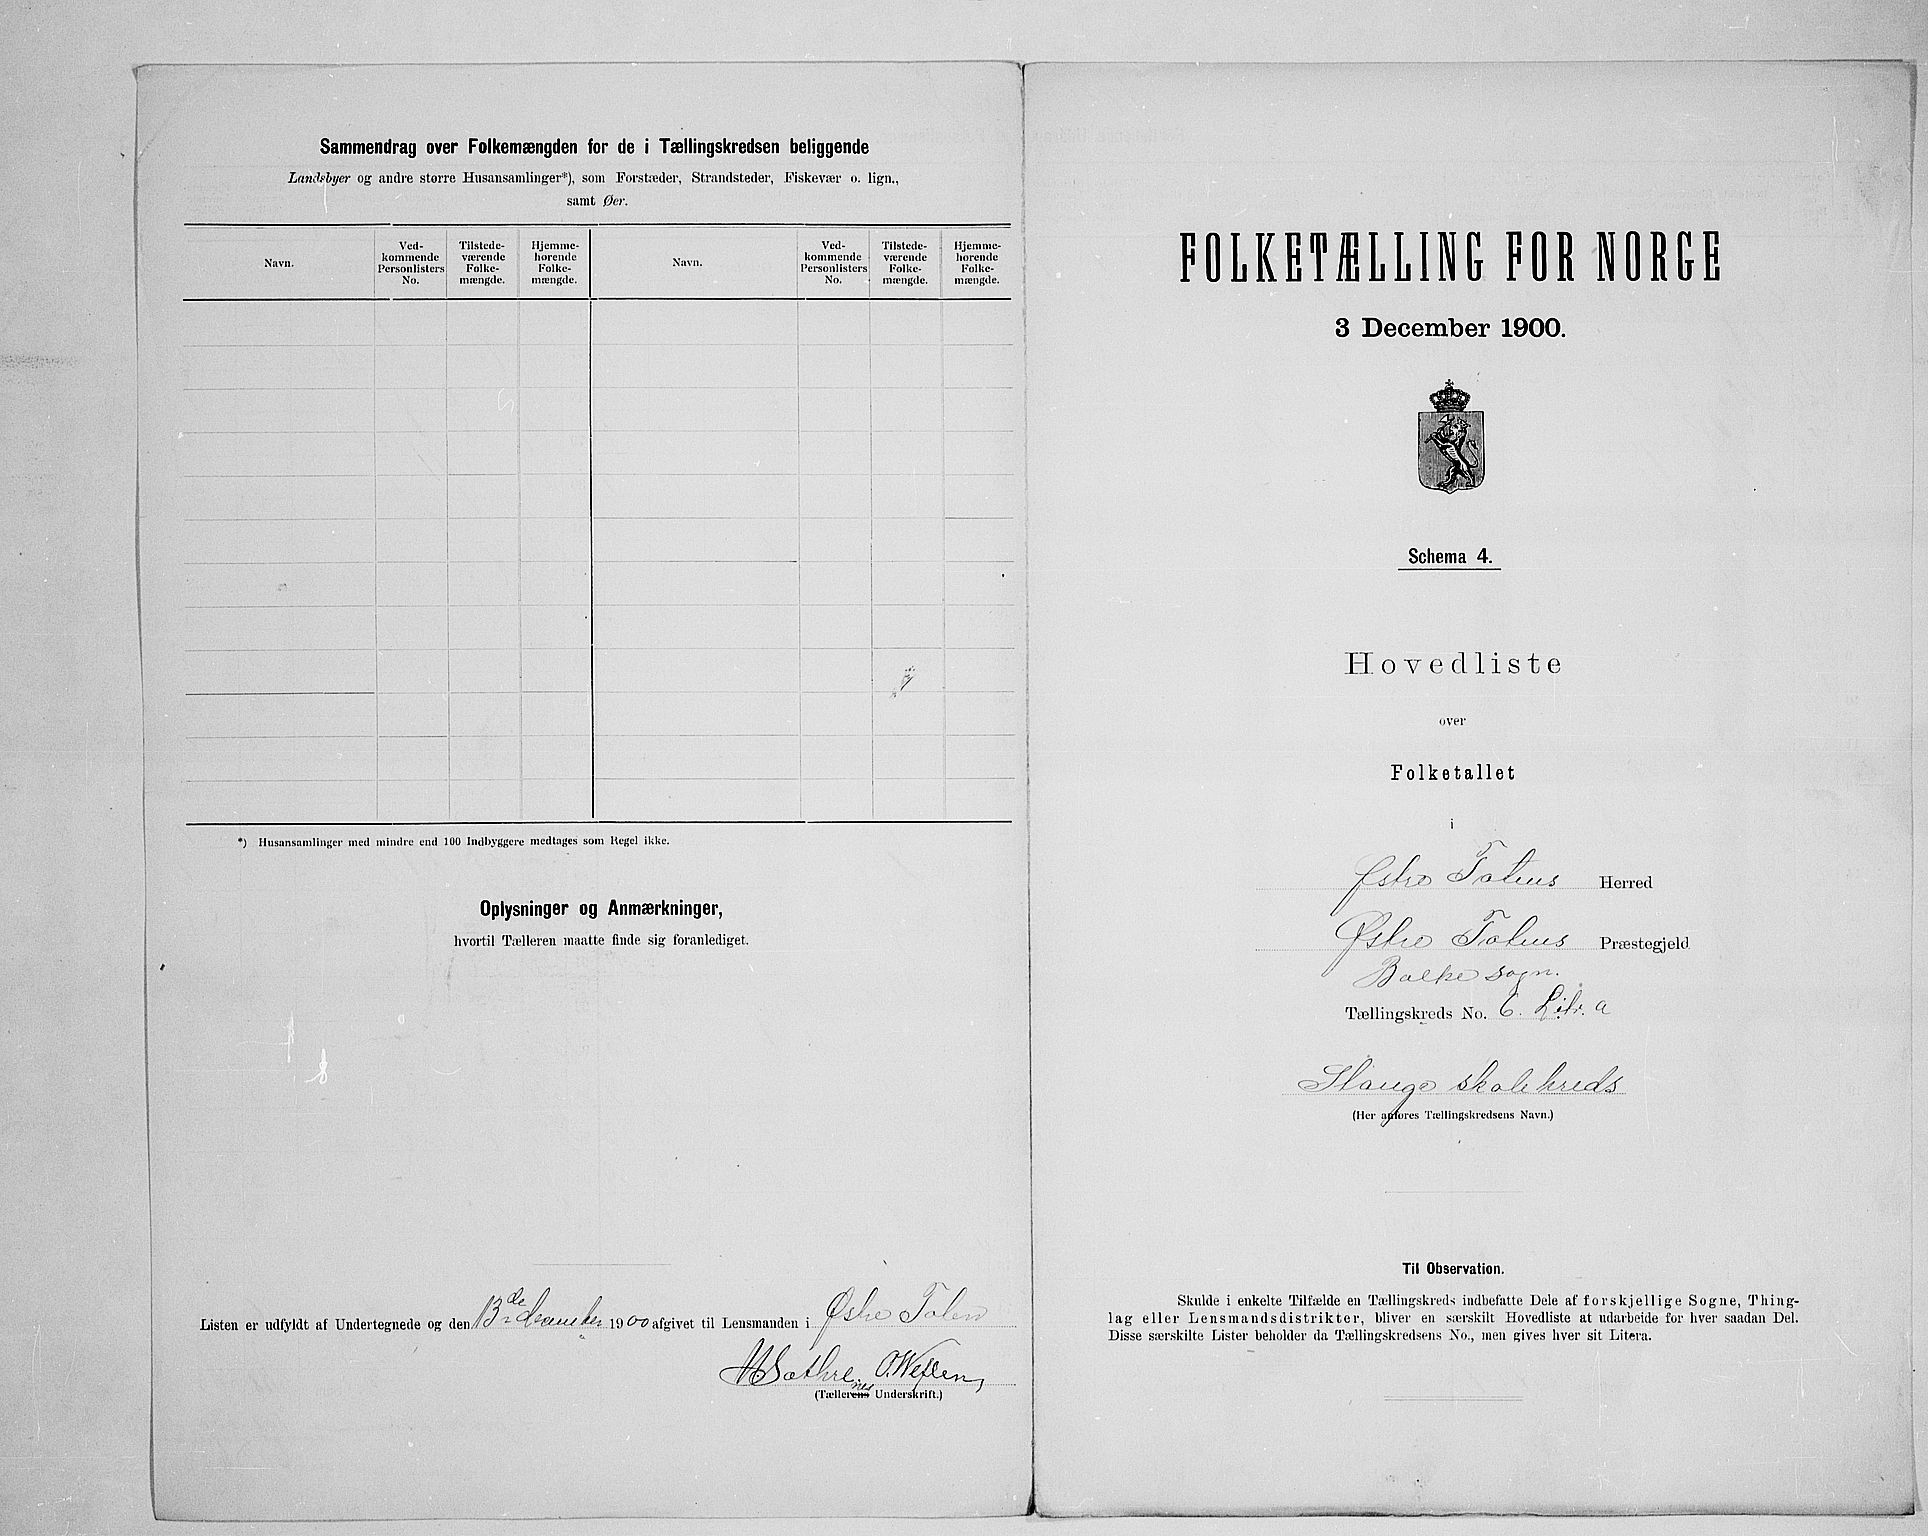 Sammendrag over Folkemængden for de i Tællingskredsen beliggende
Landsbyer og andre større Husansamlinger*), som Forstæder, Strandsteder, Fiskevær o. lign.,
samt Øer.
Navn.
Ved-
kommende
Personlisters
No.
Tilstede-
værende
Folke-
mængde.
Hjemme-
hørende
Folke-
mængde.
Navn.
Ved-
kommende
Personlisters
No.
Tilstede-
værende
Folke-
mængde.
Hjemme-
hørende
Folke-
mængde.
*) Husansamlinger med mindre end 100 Indbyggere medtages som Regel ikke.
Oplysninger og Anmærkninger,
hvortil Tælleren maatte finde sig foranlediget.
Listen er udfyldt af Undertegnede og den 13de december 1900 afgivet til Lensmanden i Østre Toten
M Sæthre. O. Weflen,
(Tællerens nes Underskrift.)
FOLKETÆLLING FOR NORGE
3 December 1900.
Schema 4.
Hovedliste
over
Folketallet
i
Østre Totens Herred
Østre Totens Præstegjeld
Balke sogn.
Tællingskreds No. 6. Litr. a
Hauge skolekreds
(Her anføres Tællingskredsens Navn.)
Til Observation.
Skulde i enkelte Tilfælde en Tællingskreds indbefatte Dele af forskjellige Sogne, Thing-
lag eller Lensmandsdistrikter, bliver en særskilt Hovedliste at udarbeide for hver saadan Del.
Disse særskilte Lister beholder da Tællingskredsens No., men gives hver sit Litera.